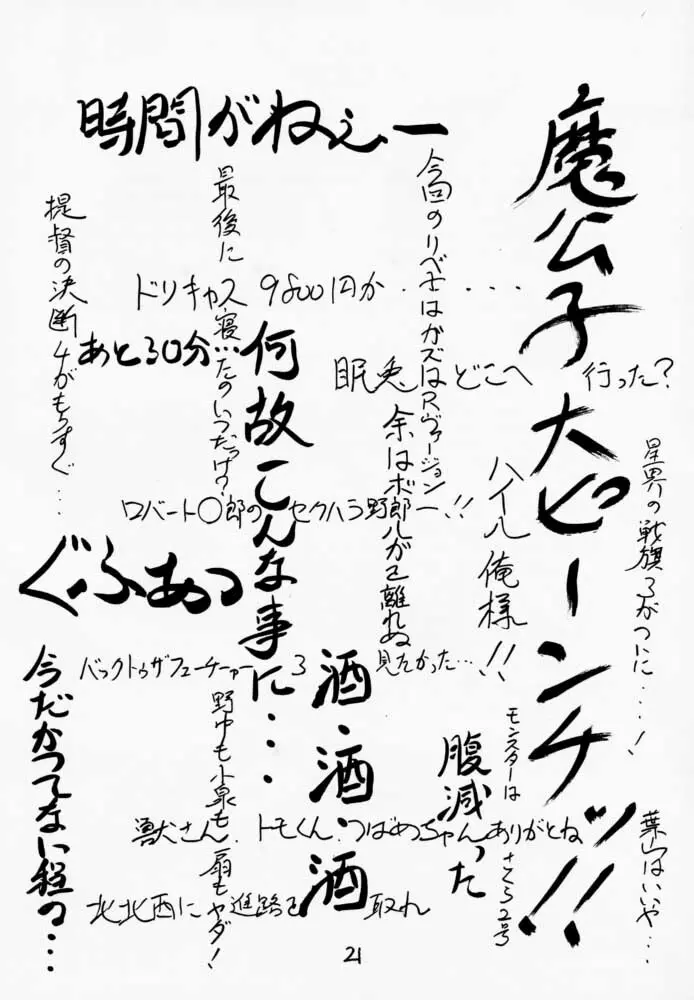 魔公子大ピーンチッ!!
時間がねぇー
星界の戦旗3がついに・・・・!
葉山はいいや・・・
ハイル俺様!!
モンスターは
さくら2号
腹減った
眠兎どこへ行った?
ドリキャス9800円か・・・・・
あと30分・・・
何故こんな事に・・・
最後に寝たのいつだっけ?
提督の決断4がもうすぐ・・・
ロバート〇郎のセクハラ野郎ー!!
ぐふあっ
バックトゥザフューチャー3見たかった・・・
酒・酒・酒
野中も小泉も扇もヤダ!
今だかつてない程の・・・
獣さん、トモくん、つばめちゃんありがとね
北北西に進路を取れ
21